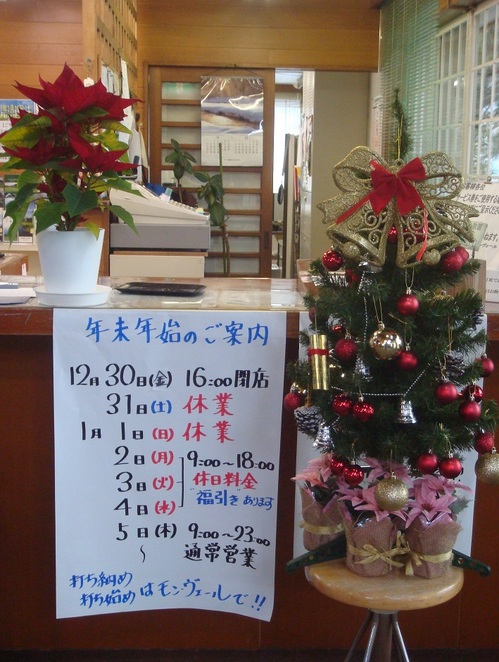 年末年始のご案内
12月30日(金) 16:00閉店
31日(土) 休業
1月 1日(日) 休業
2日(月)
3日(火)
4日(水)
9:00~18:00
休日料金
福引きあります
5日(木) 9:00~23:00
~ 通常営業
打ち納め
打ち始め はモン・ヴェールで!!